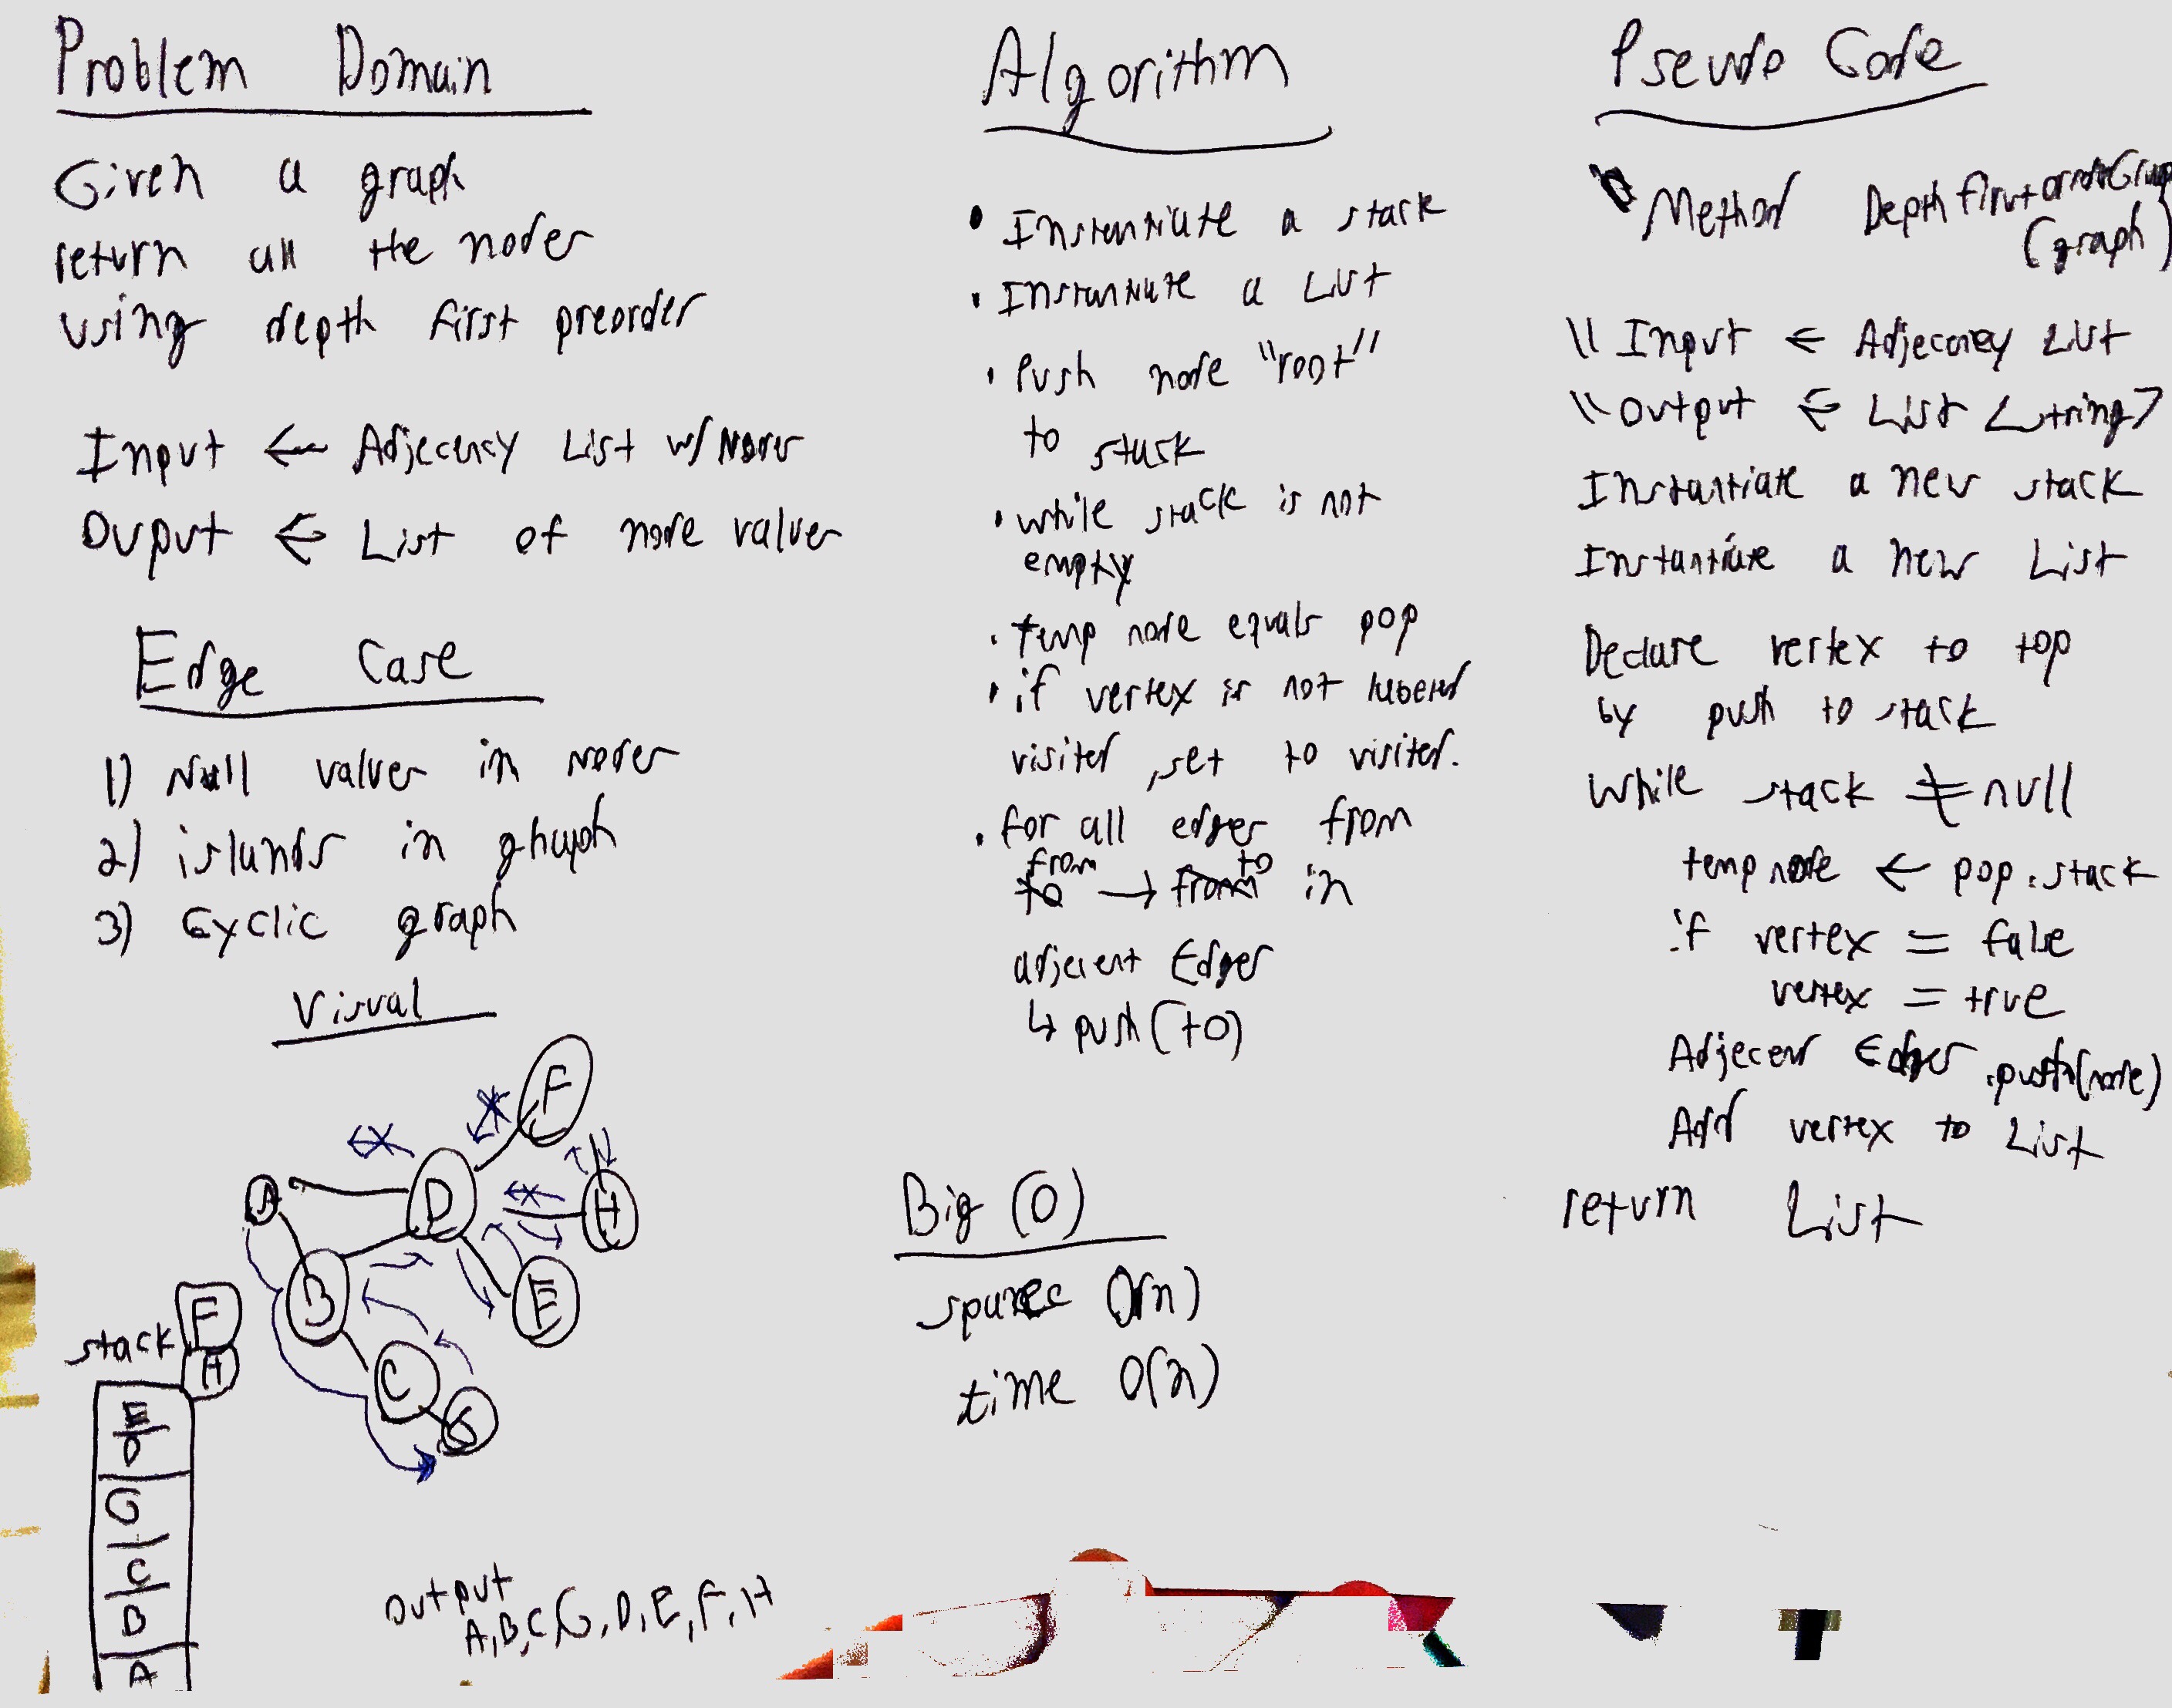 Problem Domain
Given a graph
return all the nodes
using depth first preorder
Input ← Adjecency List w/ Nodes
Ouput ← List of node values
Edge Case
1) Null values in nodes
2) islands in ghaph
3) Cyclic graph
Visual
F
A
D
H
B
E
C
G
stack
F
H
E
D
G
C
B
A
Output
A, B, C, G, D, E, F, H
Algorithm
• Instantiate a stack
• Instantiate a List
• Push node "root"
to stack
• while stack is not
empty
• temp node equals pop
• if vertex is not labeled
visited, set to visited.
• for all edges from
from to
to → from in
adjecent Edges
↳ push(to)
Big (O)
space O(n)
time O(n)
Pseudo Code
Method Depth first
(graph)
\\ Input ← Adjecency List
\\ Output ← List <string>
Instantiate a new stack
Instantiate a new List
Declare vertex to top
by push to stack
While stack ≠ null
temp node ← pop.stack
if vertex = false
vertex = true
Adjecent Edges .push(node)
Add vertex to List
return List